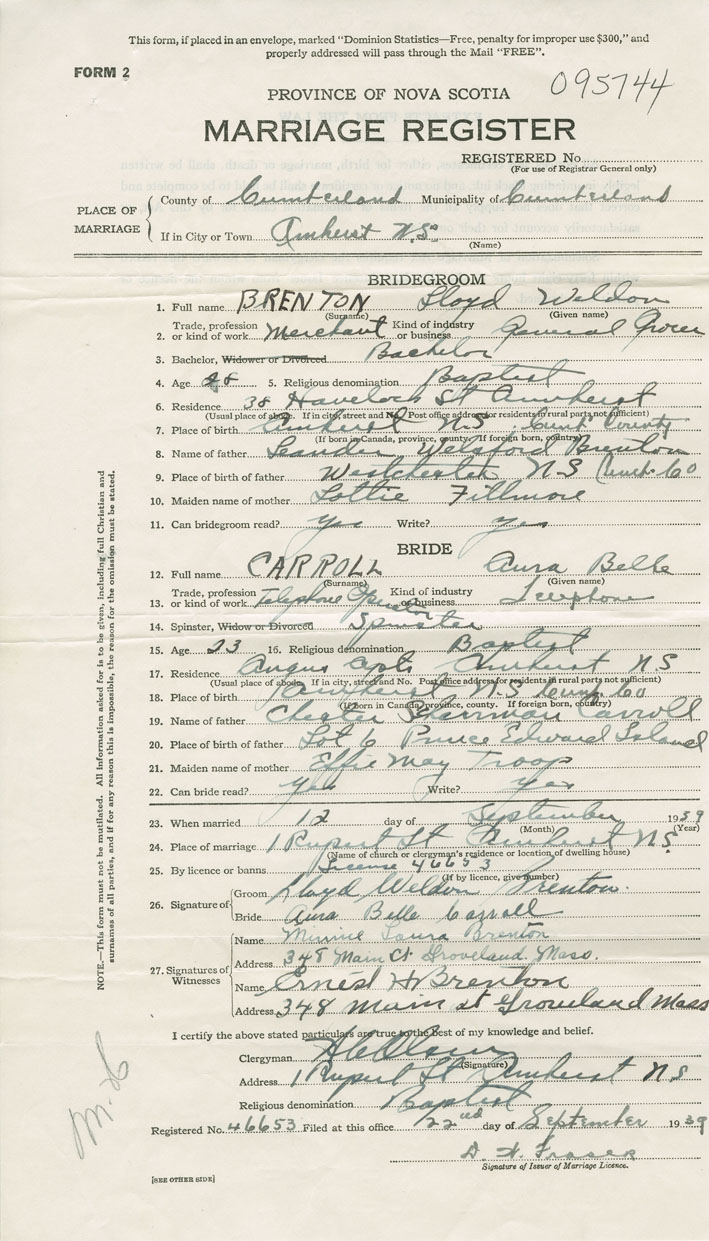 This form, if placed in an envelope, marked "Dominion Statistics—Free, penalty for improper use $300," and
properly addressed will pass through the Mail "FREE".
FORM 2
095744
PROVINCE OF NOVA SCOTIA
MARRIAGE REGISTER
REGISTERED No.
(For use of Registrar General only)
PLACE OF MARRIAGE
County of Cumberland Municipality of Cumberland
If in City or Town Amherst N.S.
(Name)
BRIDEGROOM
1. Full name BRENTON Lloyd Weldon
(Surname) (Given name)
2. Trade, profession or kind of work Merchant Kind of industry or business General Grocer
3. Bachelor, Widower or Divorced Bachelor
4. Age 28 5. Religious denomination Baptist
6. Residence 38 Havelock St Amherst
(Usual place of abode. If in city, street and No. Post office address for residents in rural parts not sufficient)
7. Place of birth Amherst N.S. Cumb County
(If born in Canada, province, county. If foreign born, country)
8. Name of father Leander Welsford Brenton
9. Place of birth of father Westchester N S Cumb. Co
10. Maiden name of mother Lottie Fillmore
11. Can bridegroom read? yes Write? yes
BRIDE
12. Full name CARROLL Aura Belle
(Surname) (Given name)
13. Trade, profession or kind of work Telephone Operator Kind of industry or business Telephone
14. Spinster, Widow or Divorced Spinster
15. Age 23 16. Religious denomination Baptist
17. Residence Angus Apts Amherst N S
(Usual place of abode. If in city, street and No. Post office address for residents in rural parts not sufficient)
18. Place of birth Amherst N.S Cumb Co
(If born in Canada, province, county. If foreign born, country)
19. Name of father Chester Sherman Carroll
20. Place of birth of father Lot 6 Prince Edward Island
21. Maiden name of mother Effie May Troop
22. Can bride read? yes Write? yes
23. When married 12 day of September 1939
(Month) (Year)
24. Place of marriage 1 Rupert St Amherst N.S.
(Name of church or clergyman's residence or location of dwelling house)
25. By licence or banns License 46653
(If by licence, give number)
26. Signature of
Groom Lloyd Weldon Brenton.
Bride Aura Belle Carroll
27. Signatures of Witnesses
Name Minnie Laura Brenton
Address 348 Main St Groveland Mass.
Name Ernest H Brenton
Address 348 Main st Groveland Mass
I certify the above stated particulars are true to the best of my knowledge and belief.
Clergyman
(Signature)
Address 1 Rupert St Amherst N S
Religious denomination Baptist
Registered No. 46653 Filed at this office 22nd day of September 1939
D. W. Fraser
Signature of Issuer of Marriage Licence.
[SEE OTHER SIDE]
NOTE.—This form must not be mutilated. All information asked for is to be given, including full Christian and
surnames of all parties, and if for any reason this is impossible, the reason for the omission must be stated.